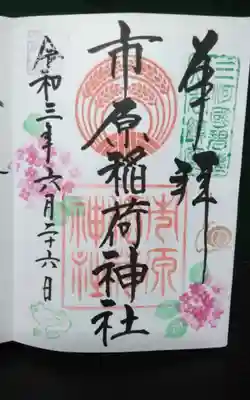 奉拝
市原稲荷神社
令和三年六月二十六日
市原稲荷神社